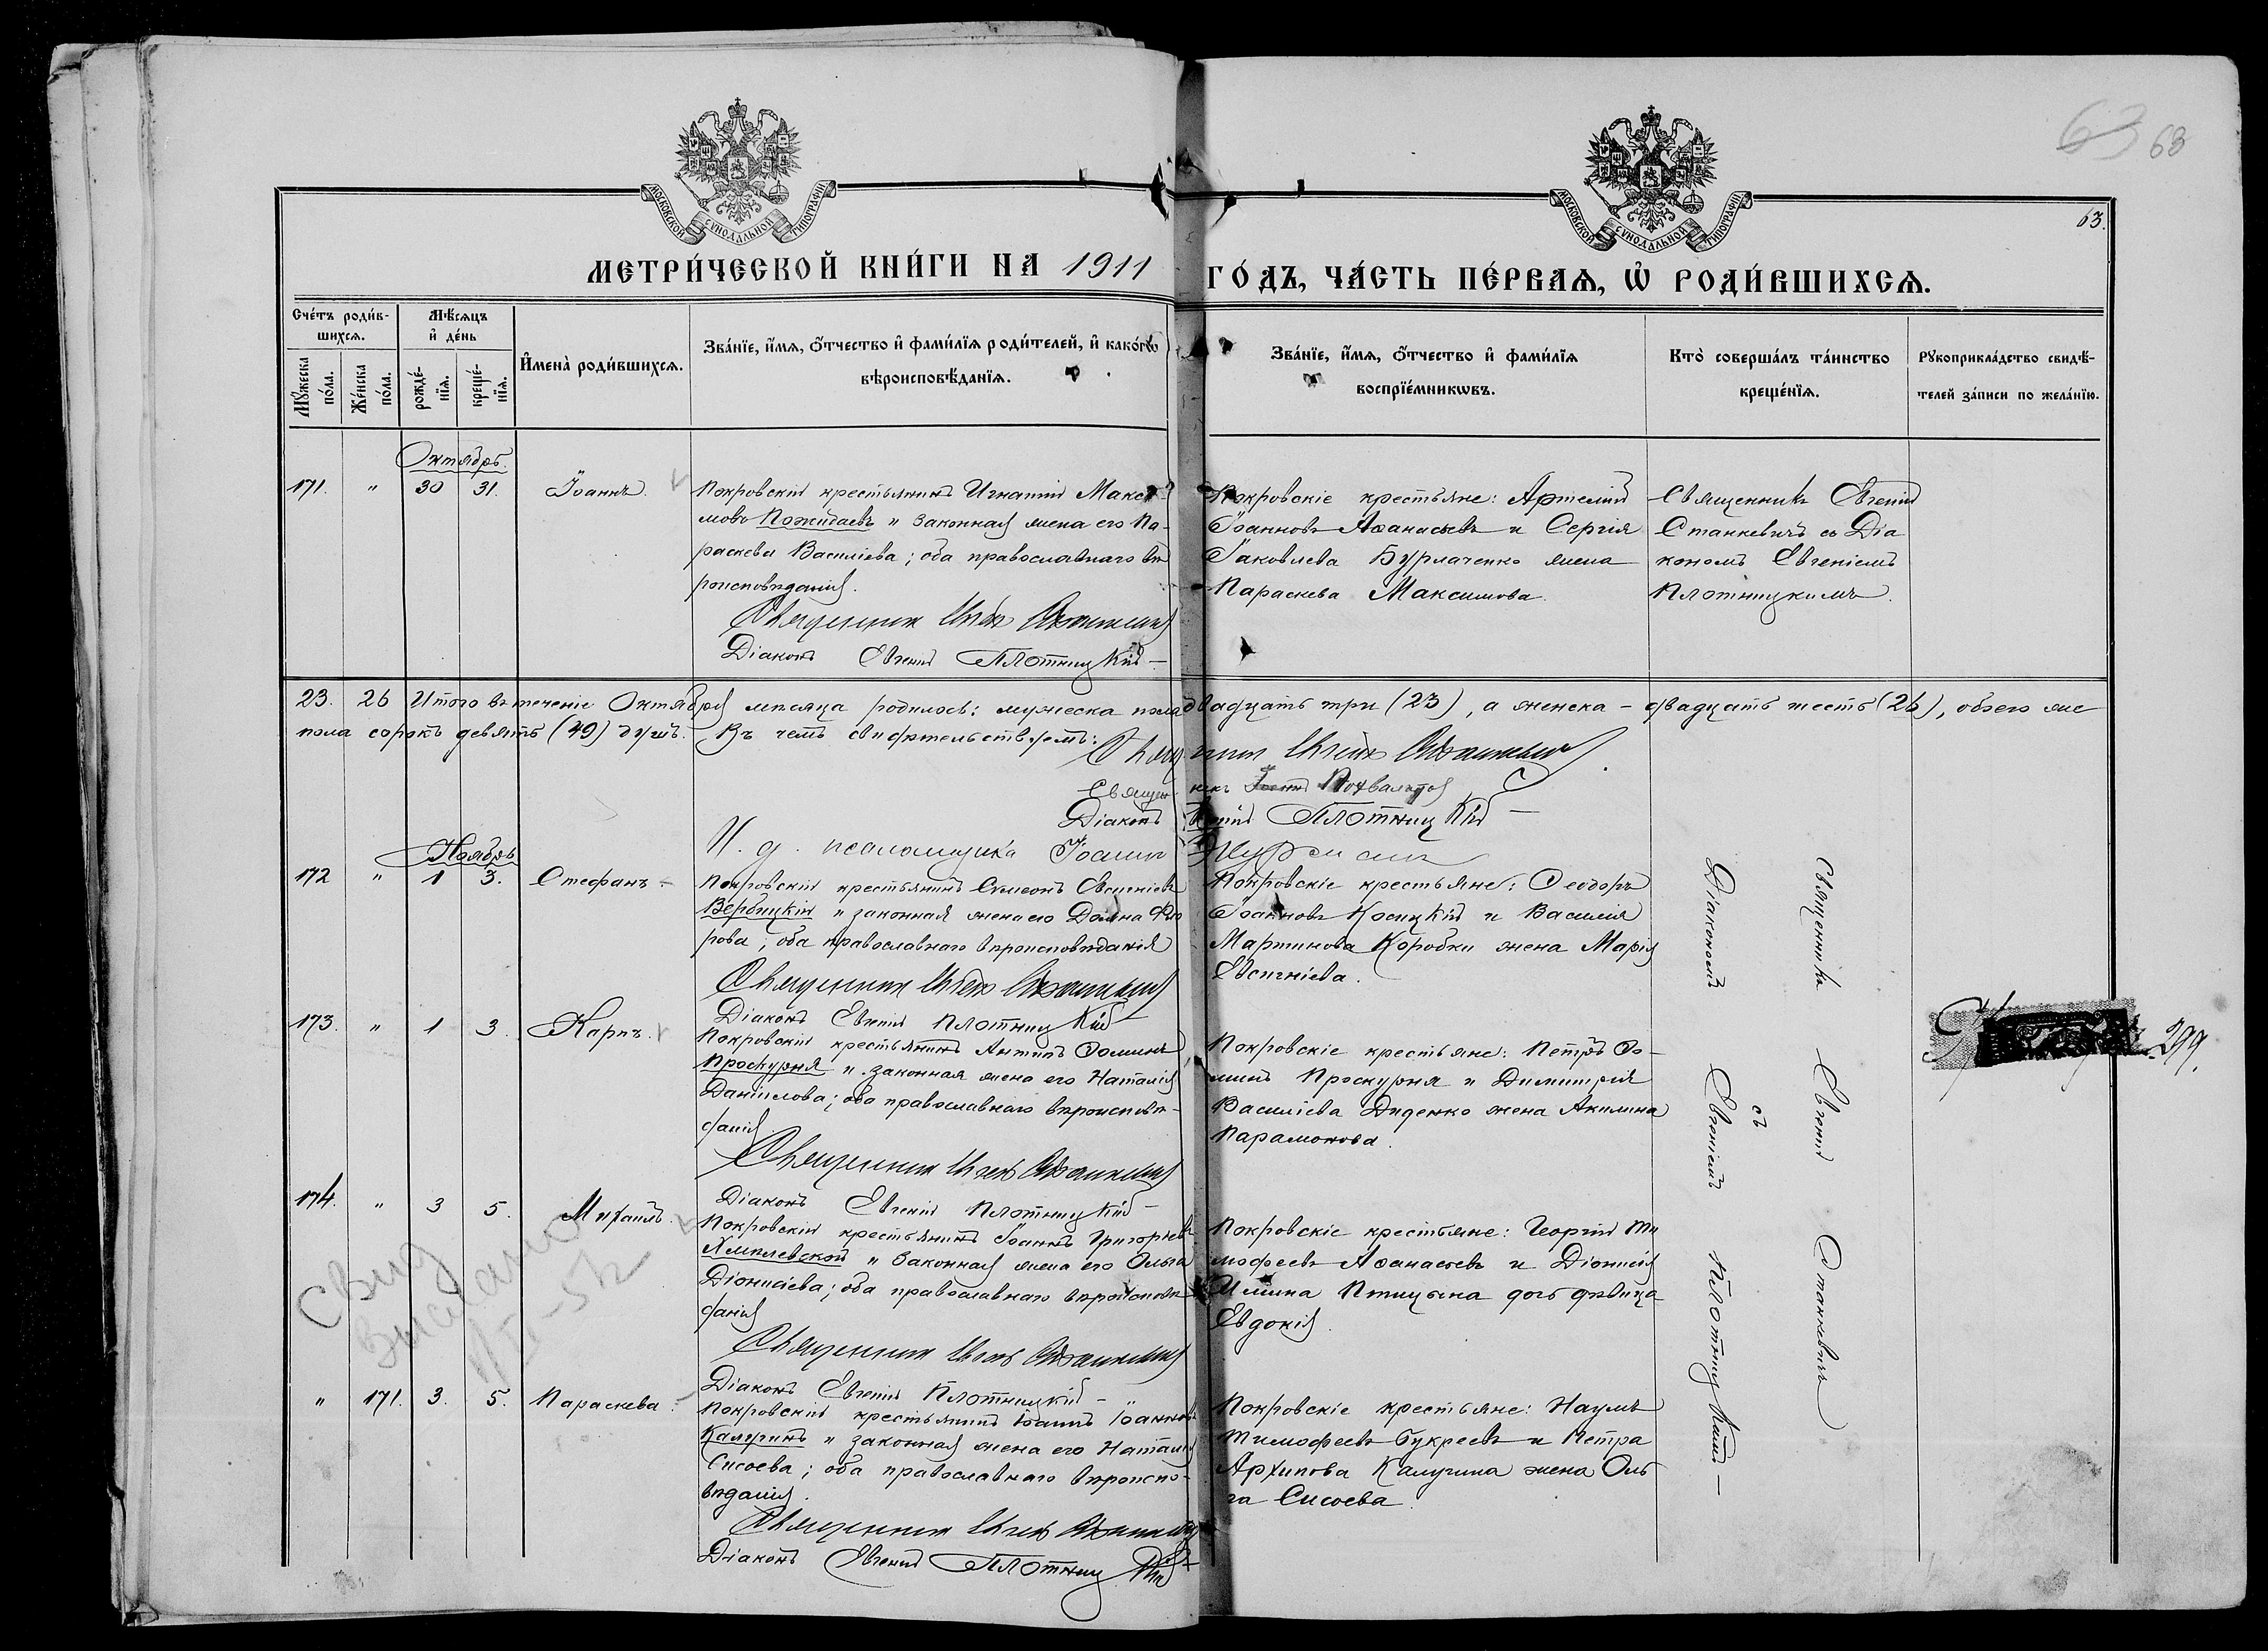 63 63
63.
МОСКОВСКОЙ СѴНОДАЛЬНОЙ ТИПОГРАФІИ
МОСКОВСКОЙ СѴНОДАЛЬНОЙ ТИПОГРАФІИ
МЕТРИ́ЧЕСКОЙ КНИ́ГИ НА 1911 ГО́ДЪ, ЧА́СТЬ ПЕ́РВАѦ, Ѡ҆ РОДИ́ВШИХСѦ.
Сче́тъ роди́в-
шихсѧ.
Мѣ́сѧцъ
и҆ де́нь
Мꙋ́жеска
по́ла.
Же́нска
по́ла.
рожде́-
нїѧ.
креще́-
нїѧ.
И҆мена̀ роди́вшихсѧ.
Зва́нїе, и҆́мѧ, ѻ҆́тчество и҆ фами́лїѧ роди́телей, и҆ како́гѡ
вѣроисповѣ́данїѧ.
Зва́нїе, и҆́мѧ, ѻ҆́тчество и҆ фами́лїѧ
воспрїе́мникѡвъ.
Кто̀ соверша́лъ та́инство
креще́нїѧ.
Рꙋкоприкла́дство свидѣ́-
телей за́писи по жела́нїю.
Октябрь.
171. " 30 31. Іоаннъ.
Покровскій крестьянинъ Игнатій Макси-
мовъ Пожидаевъ и законная жена его Па-
раскева Василіева; оба православнаго вѣ
роисповѣданія.
Священникъ
Діаконъ Евгеній Плотницкій
Покровскіе крестьяне: Артемій
Іоанновъ Аѳанасьевъ и Сергія
Іаковлева Бурлаченко жена
Параскева Максимова.
Священникъ Евгеній
Станкевичъ съ Діа
кономъ Евгеніемъ
Плотницкимъ.
23. 26 Итого въ теченіе Октября мѣсяца родилось: мужеска пола двадцать три (23), а женска – двадцать шесть (26), обоего же
пола сорокъ девять (49) душъ. Въ чемъ свидѣтельствуемъ:
Священникъ
Священникъ
Діаконъ Евгеній Плотницкій
И. д. псаломщика Іоаннъ
Ноябрь
172 " 1 3. Стефанъ.
Покровскій крестьянинъ Симеонъ Евсигніевъ
Вербицкій и законная жена его Домна Фло
рова; оба православнаго вѣроисповѣданія
Священникъ
Діаконъ Евгеній Плотницкій
Покровскіе крестьяне: Ѳеодоръ
Іоанновъ Косицкій и Василія
Мартинова Коробки жена Марія
Евсигніева.
173. " 1 3. Карпъ.
Покровскій крестьянинъ Антипъ Ѳоминъ
Проскурня и законная жена его Наталія
Даніилова; оба православнаго вѣроисповѣ-
данія.
Священникъ
Діаконъ Евгеній Плотницкій
Покровскіе крестьяне: Петръ Ѳо-
минъ Проскурня и Димитрія
Василіева Диденко жена Акилина
Парамонова.
299.
174. " 3 5. Михаилъ.
Покровскій крестьянинъ Іоаннъ Григорьевъ
Хмилевской и законная жена его Ольга
Діонисіева; оба православнаго вѣроисповѣ
данія
Священникъ
Діаконъ Евгеній Плотницкій
Покровскіе крестьяне: Георгій Ти
мофеевъ Аѳанасьевъ и Діонисія
Ильина Птицына дочь дѣвица
Евдокія.
Свид
выслано
" 171. 3. 5. Параскева.
Покровскій крестьянинъ Іоаннъ Іоанновъ
Калугинъ и законная жена его Наталія
Сисоева; оба православнаго вѣроиспо-
вѣданія.
Священникъ
Діаконъ Евгеній Плотницкій
Покровскіе крестьяне: Наумъ
Тимофеевъ Букреевъ и Петра
Архипова Калугина жена Оль
га Сисоева.
Священникъ Евгеній Станкевичъ
съ
Діакономъ Евгеніемъ Плотницкимъ